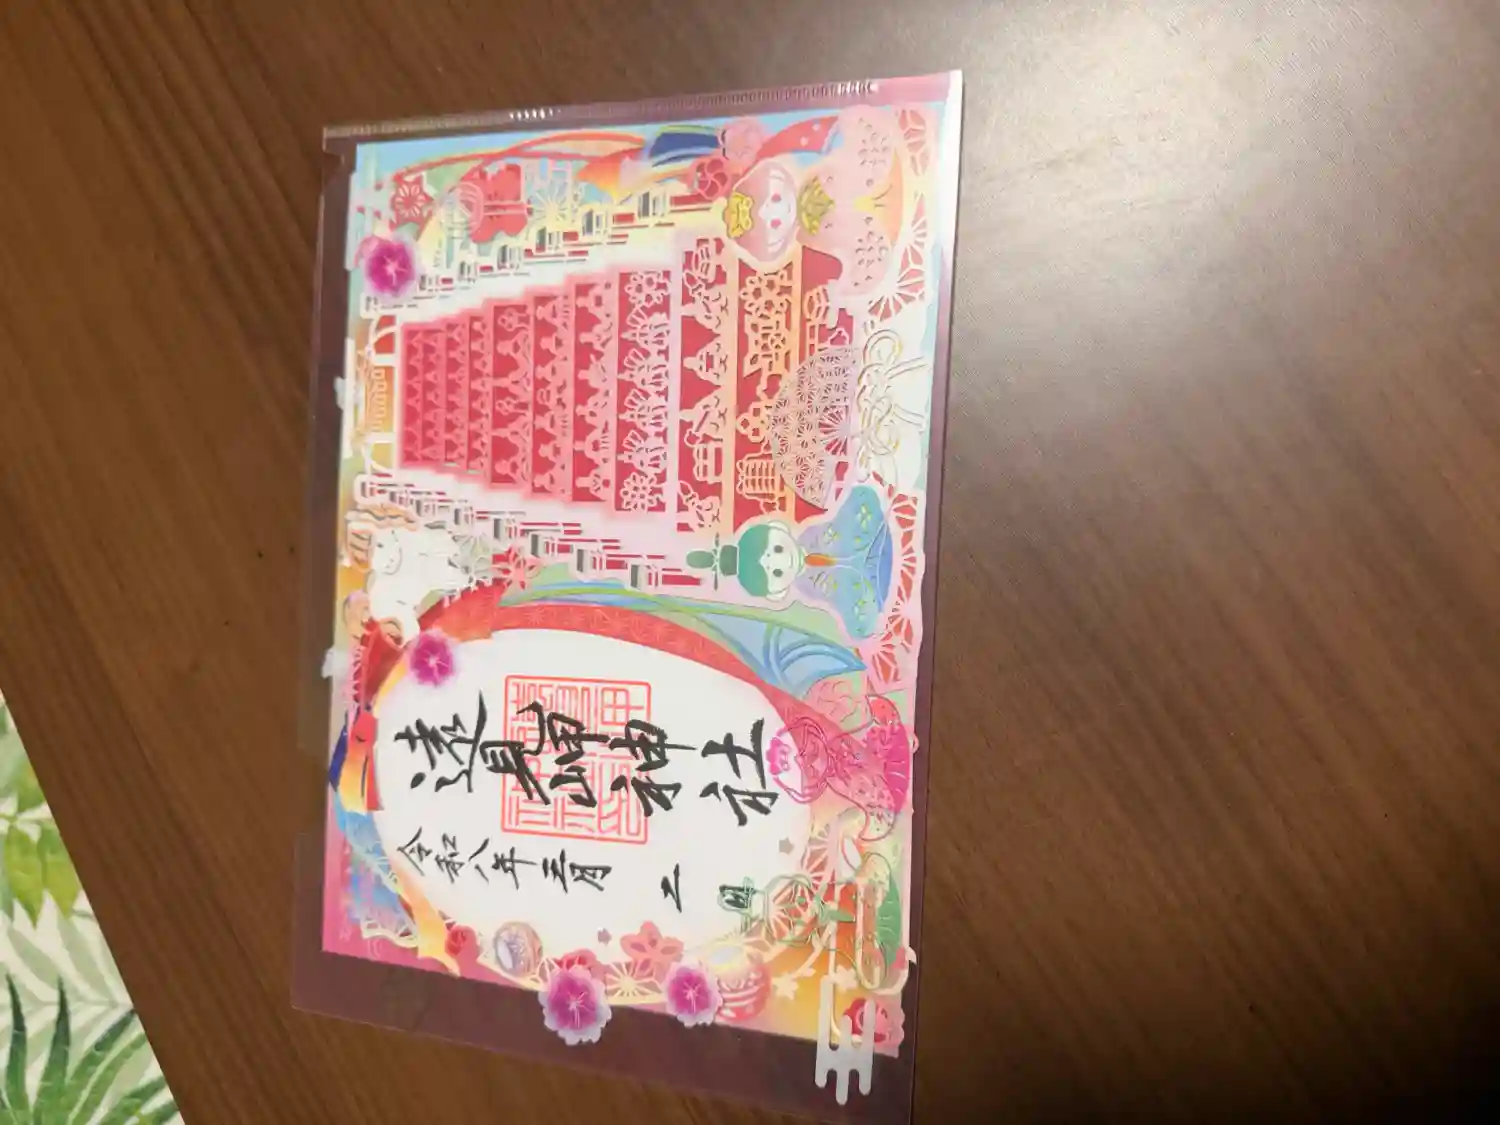 遠見岬神社
令和八年三月